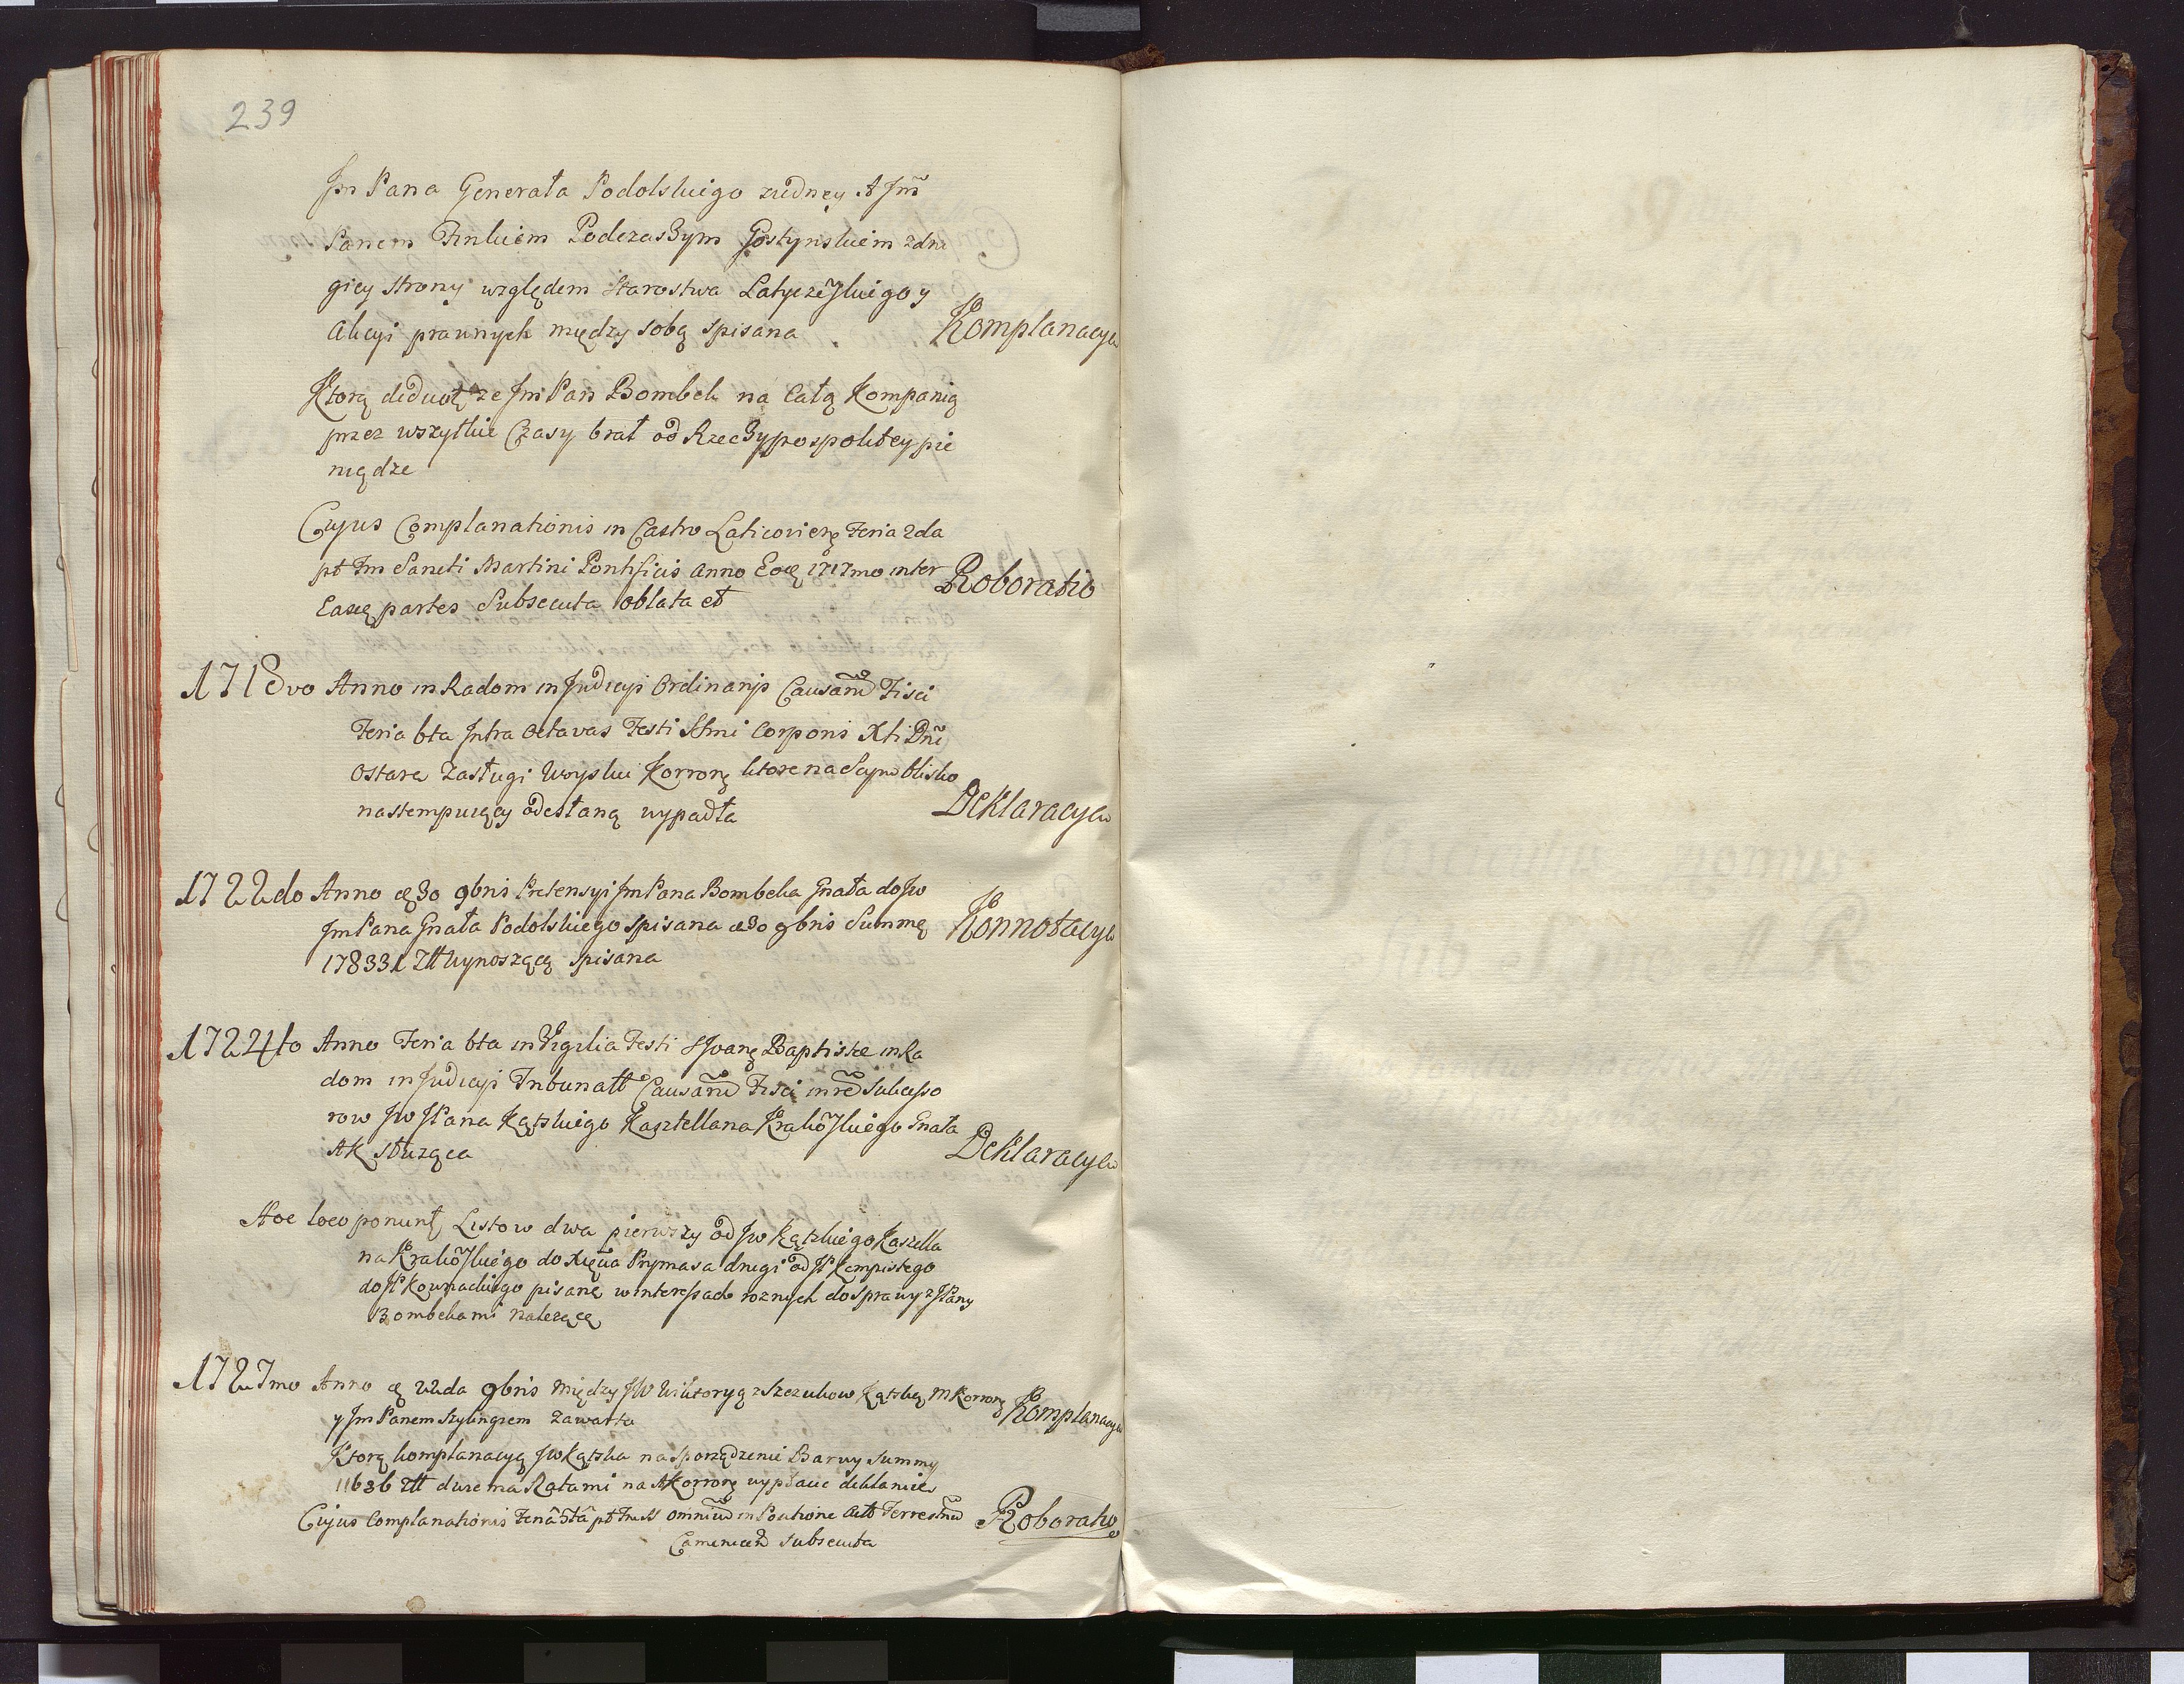 239
Jm Pana Generała Podolskiego z iedney A Jm
Panem Finkiem Podczaszym Gostynskiem z dru
giey strony względem Starostwa Latycze͠skiego y
Akcyi prawnych między sobą spisana Komplanacya
Ktorą że Jm Pan Bombek na Całą Kompanią
przez wszytkie Czasy brał od Rzeczypospolitey pie
niądze
Cujus Complanationis in Castro Laticovien Feria 2da
pt Fm Sancti Martini Pontificis Anno Eoq 1717mo inter
Easq partes Subsecuta oblata et Roboratio
1718vo Anno in Radom in Judicyi Ordinarijs Causarũ Fisci
Feria 6ta Intra Octavas Festi SSmi Corporis Xti Dni
o stare Zasługi Woyska Korroñ ktore na Seym blisko
nastempuiący odesłaną wypadła Deklaracya
1722do Anno 30 9bris Pretensyi Jm Pana Bombeka Gnała do Jw
Jm Pana Gnała Podolskiego spisana 30 9bris Summę
178331 Złł wynoszącą spisana Konnotacya
1724to Anno Feria 6ta in Vigilia Festi S Joañ Baptistæ in Ra
dom in Judicyi Tribunałł Causarũ Fisci in rẽ Sukcesso
row Jw JPana Kątskiego Kasztellana Krako͠skiego Gnała
AK służąca Deklaracya
Hoc loco ponunt Listow dwa pierwszy od Jw Kątskiego Kasztella
na Krako͠skiego do Xięcia Prymasa drugi od JP Kempistego
do JP Kownackiego pisane w interessach roznych do Sprawy z JPany
Bombekami należące
1727mo Anno 22da 9bris między JW Wiktoryą z Szczukow Kątską M Korronñ
y Jm Panem Szylingiem zawarta Komplanacya
Ktorą komplanacyą Jw Kątska na sporządzenie Barwy Summy
11636 Złł dwiema Ratami na AKorronñ wypłacić deklaruie
Cujus Complanationis Feria 5ta pt Fm SS Omniũ in Actt Terrestriũ
Camenecen Subsecuta Roboratio